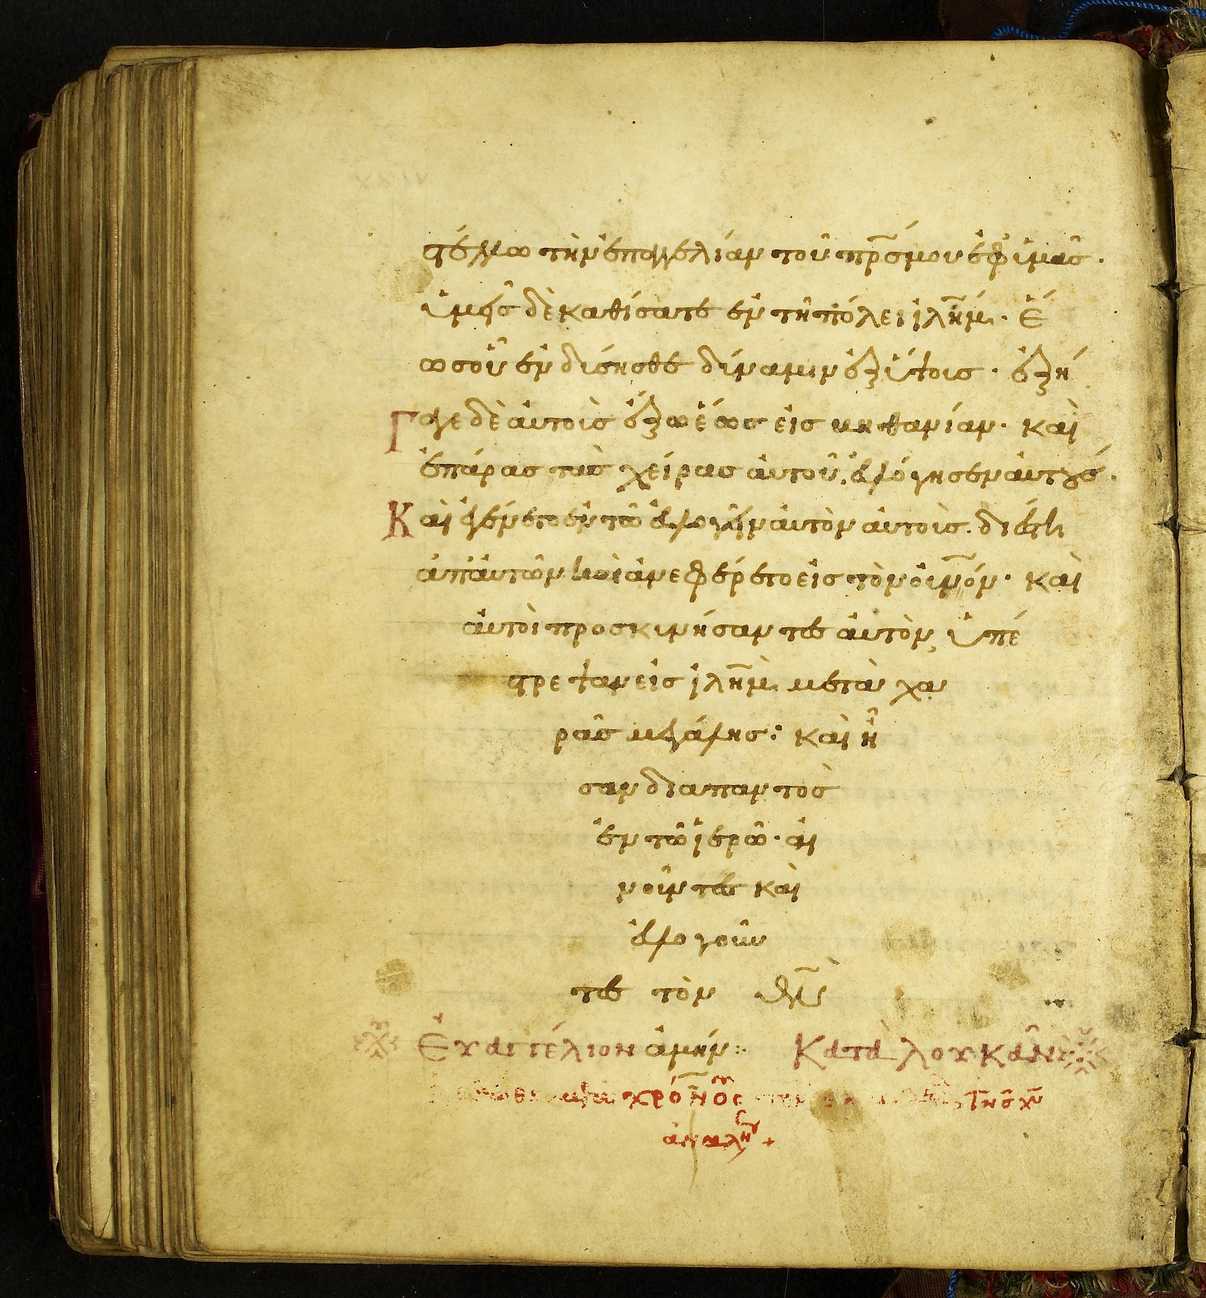 στέλλω τὴν ἐπαγγελίαν τοῦ πρς μου ἐφ' ὑμᾶς.
ὑμεῖς δὲ καθίσατε ἐν τῆ πόλει ἱλημ. ἕ
ως οὗ ἐνδύσησθε δύναμιν ἐξ ὕψους. ἐξή
Γαγε δὲ αὐτοὺς ἔξω ἕως εἰς βηθανίαν. καὶ
ἐπάρας τὰς χεῖρας αὐτοῦ, εὐλόγησεν αὐτούς.
Καὶ ἐγένετο ἐν τῶ εὐλογεῖν αὐτὸν αὐτοὺς. διέστη
ἀπ' αὐτῶν καὶ ἀνεφέρετο εἰς τὸν οὐνόν. καὶ
αὐτοὶ προσκυνήσαντες αὐτὸν, ὑπέ
στρεψαν εἰς ἱλημ μετὰ χα
ρᾶς μεγάλης: καὶ ἦ
σαν διαπαντὸς
ἐν τῶ ἱερῶ. αἰ
νοῦντες καὶ
εὐλογοῦν
τες τὸν θν
Εὐαγγέλιον ἀμήν: Κατὰ λουκᾶν
χρόνους τῆς χυ
ἀναλήψ +